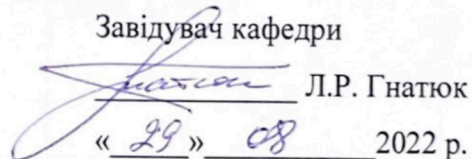 Завідувач кафедри
Л.Р. Гнатюк
«29» 08 2022 р.